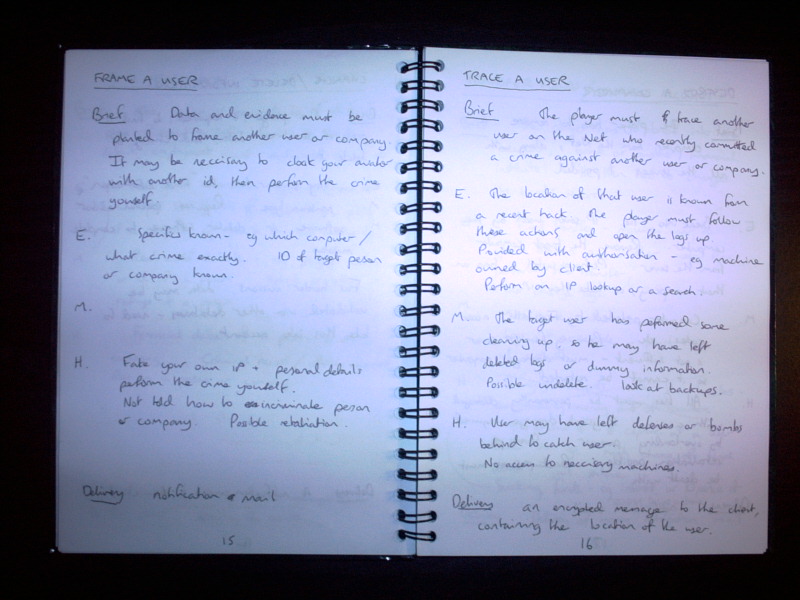 FRAME A USER
Brief Data and evidence must be
planted to frame another user or company.
It may be neccisary to cloak your avatar
with another id, then perform the crime
yourself.
E. Specifics known - eg which computer /
what crime exactly. ID of target person
or company known.
M.
H. Fake your own IP + personal details
perform the crime yourself.
Not told how to incriminate person
or company. Possible retaliation.
Delivery notification e mail
15
TRACE A USER
Brief The player must trace another
user on the Net who recently committed
a crime against another user or company.
E. The location of that user is known from
a recent hack. The player must follow
these actions and open the logs up.
Provided with authorisation - eg machine
owned by client.
Perform an IP lookup or a search
M. The target user has peformed some
cleaning up, so he may have left
deleted logs or dummy information.
Possible undelete. look at backups.
H. User may have left defenses or bombs
behind to catch user.
No access to neccisary machines.
Delivery an encrypted message to the client,
containing the location of the user.
16